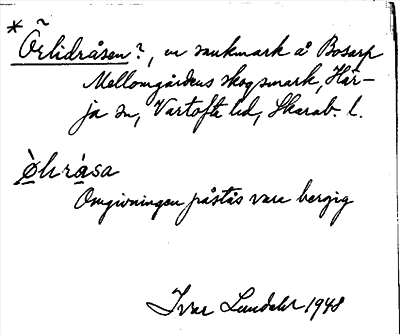 * Örlidråsen?, en sankmark å Bosarp
Mellomgårdens skogsmark, Här-
ja sn, Vartofta hd, Skarab. l.
Øhråsa
Omgivningen påstås vara bergig
Ivar Lundahl 1948